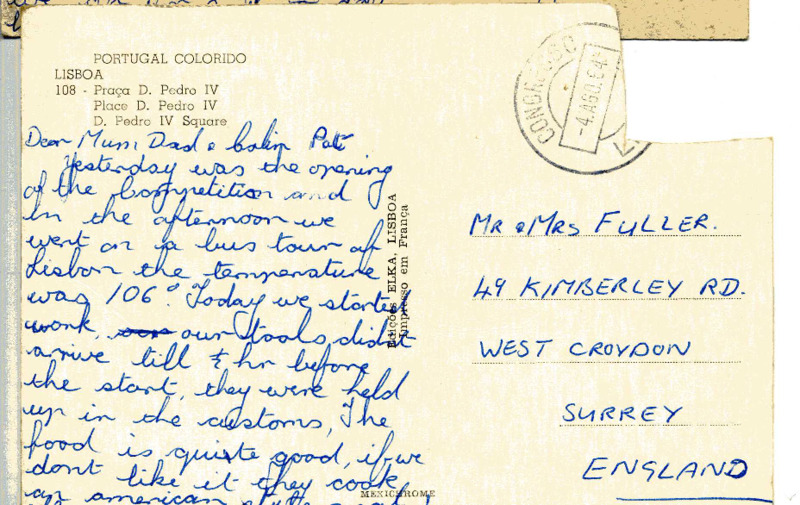 PORTUGAL COLORIDO
LISBOA
108 - Praça D. Pedro IV
Place D. Pedro IV
D. Pedro IV Square
CONGRESSO
-4.AGO.64
Dear Mum Dad & Colin Pat
Yesterday was the opening
of the Competition and
in the afternoon we
went on a bus tour of
Lisbon the temperature
was 106°. Today we started
work, our tools didnt
arrive till ½ hr before
the start, they were held
up in the customs, The
food is quiste good, if we
dont like it they cook
an american
Edições ELKA, LISBOA
Impresso em França
MEXICHROME
MR & MRS FULLER.
49 KIMBERLEY RD.
WEST CROYDON
SURREY
ENGLAND